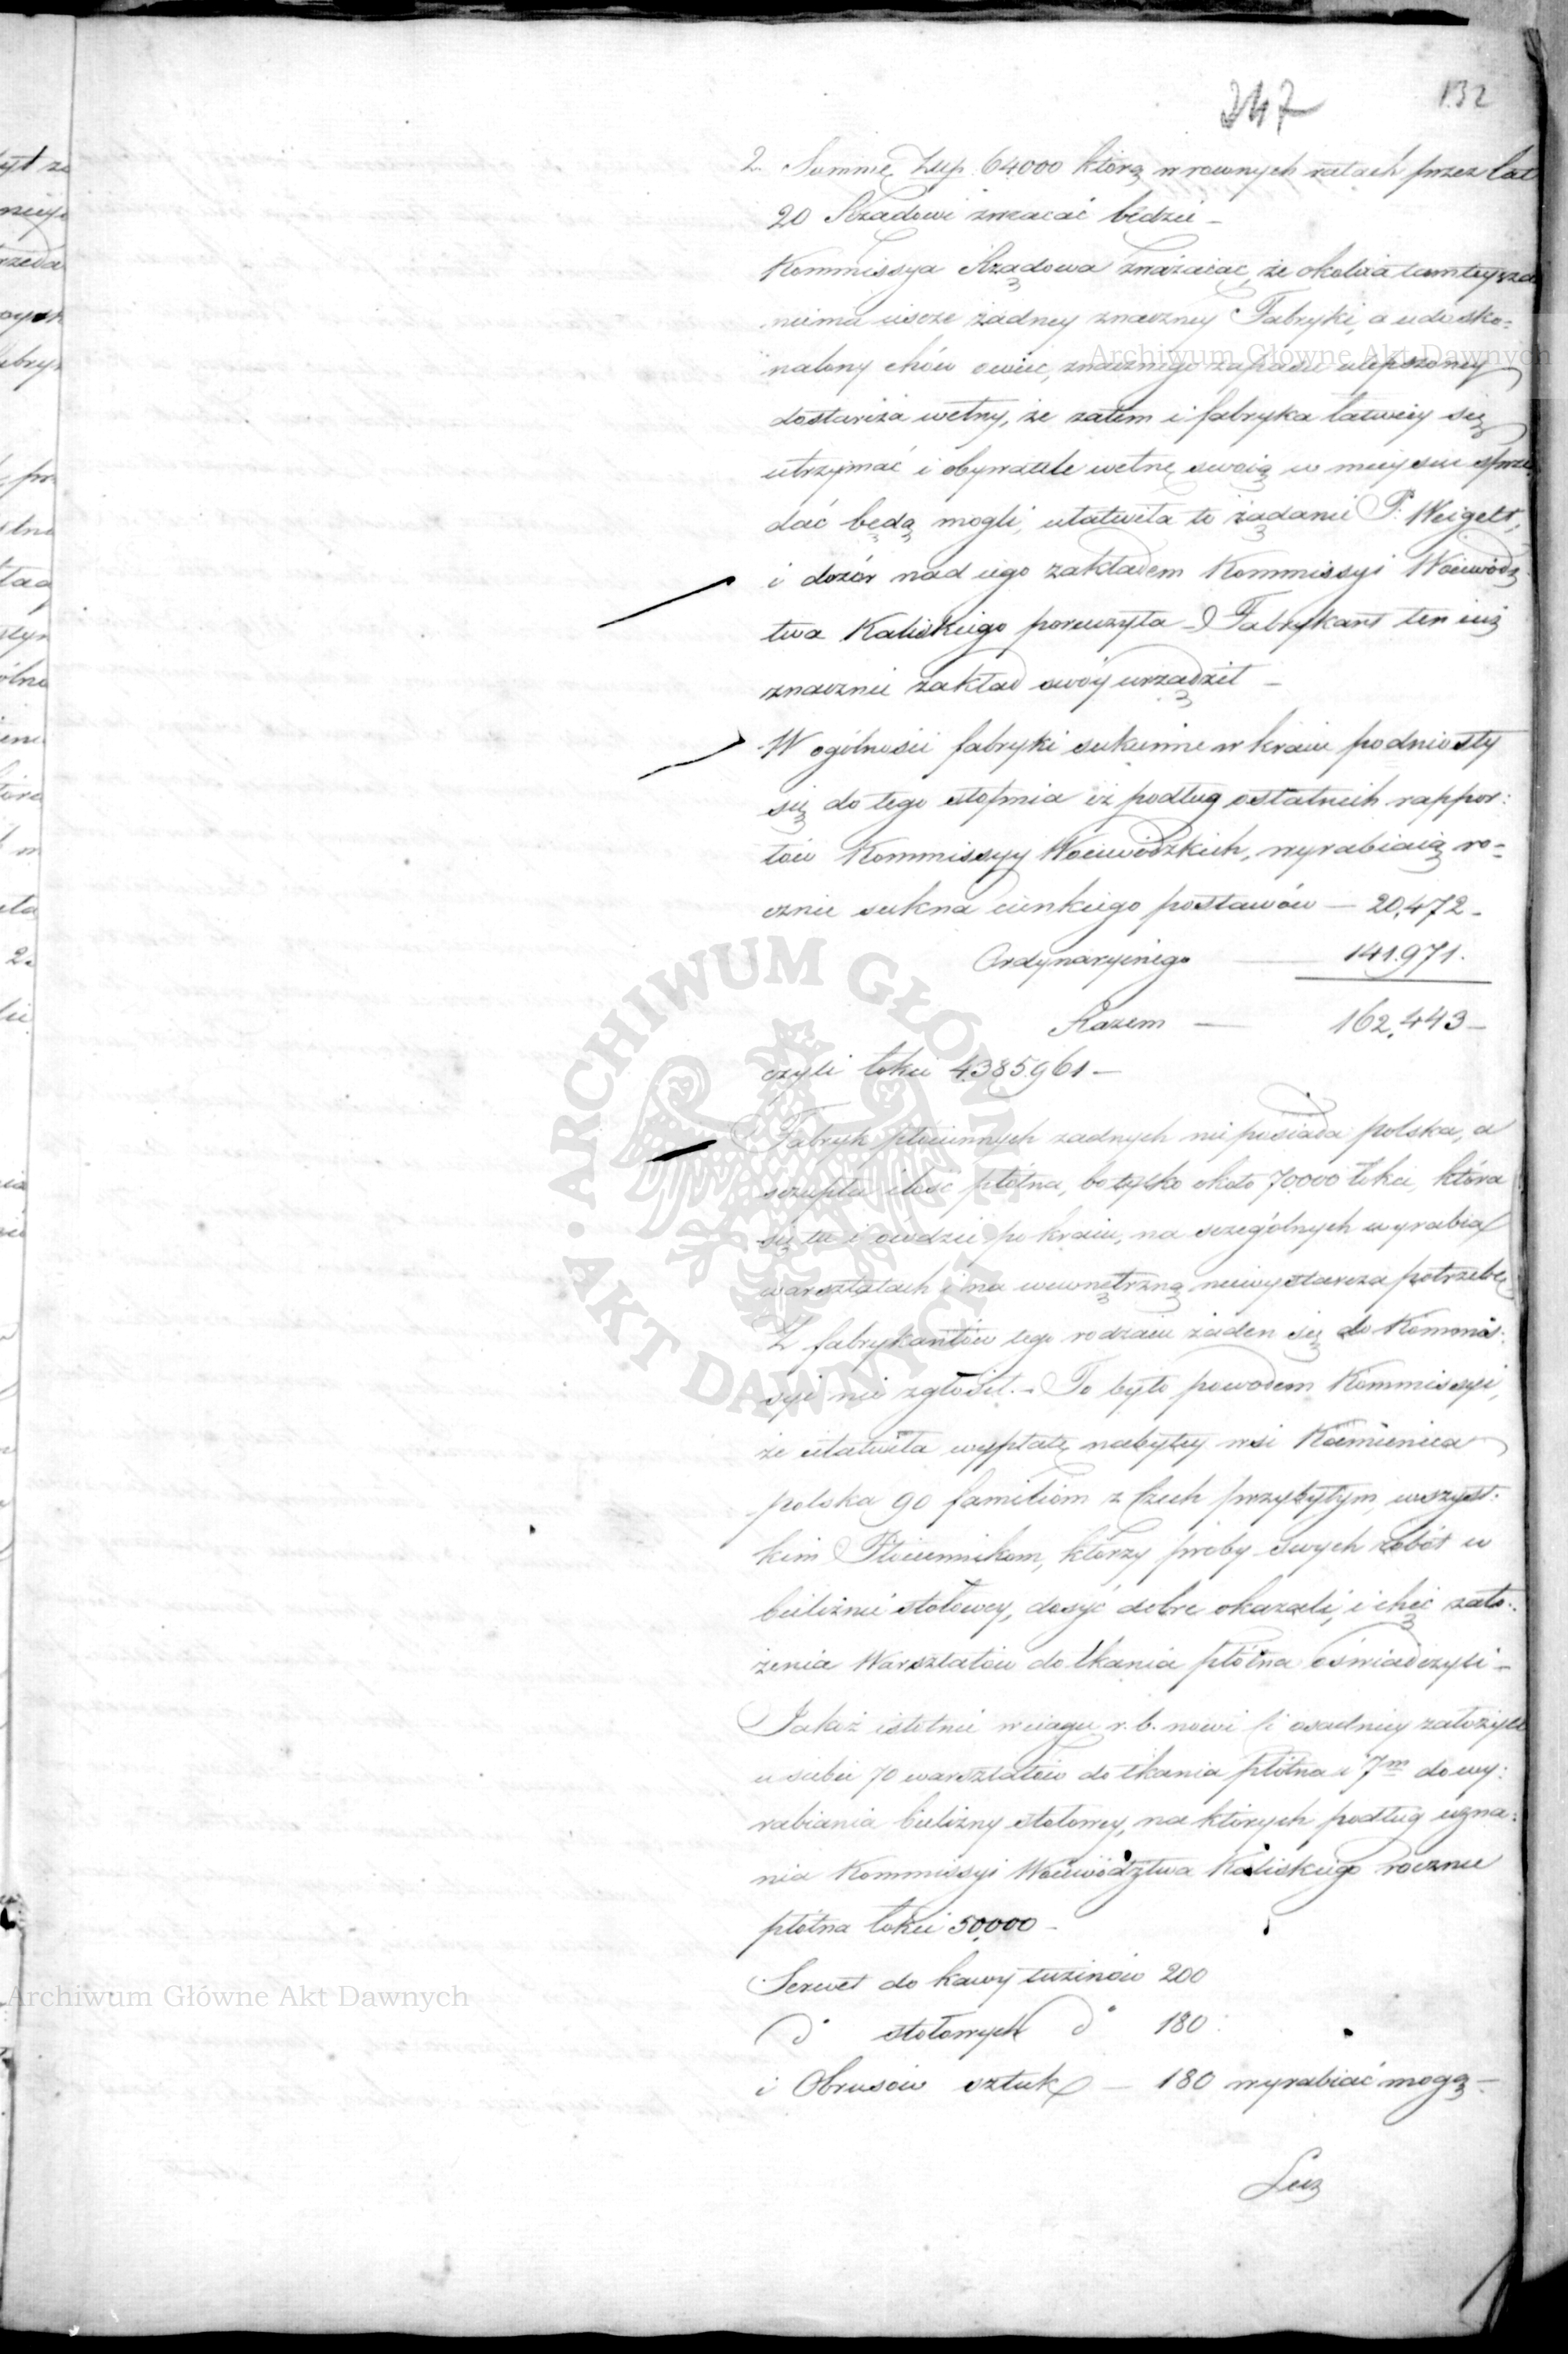 247 132
2. Summę Złp. 64000 którą w rownych ratach przez lat
20 Rządowi zwracać będzie –
Kommissya Rządowa zważaiąc, że okolica tamteysza
niema ieszcze żadney znaczney Fabryki, a udosko=
nalony chów owiec, znacznego zapasu ulepszoney
dostarcza wełny, że zatem i fabryka łatwiey się
utrzymać i obywatele wełnę swoią w mieyscu sprze
dać będą mogli, ułatwiła to żądanie P. Weigelt,
i dozór nad iego zakładem Kommissyi Woiewódz
twa Kaliskiego poruczyła – Fabrykant ten iuż
znacznie zakład swóy urządził –
W ogólności fabryki sukienne w kraiu podniosły
się do tego stopnia iż podług ostatnich rappor:
tów Kommissyy Woiewódzkich, wyrabiaią ro=
cznie sukna cienkiego postawów – 20,472.
Ordynaryinego — 141.971.
Razem — 162,443 –
czyli łokci 4.385.961 –
Fabryk płóciennych żadnych nie posiada polska, a
szczupła ilość płótna, bo tylko około 70000 łokci, która
się tu i ówdzie po kraiu, na szczególnych wyrabia
warsztatach i na wewnętrzną niewystarcza potrzebę
Z fabrykantów tego rodzaiu żaden się do Kommis:
syi nie zgłosił. – To było powodem Kommissyi,
że ułatwiła wypłatę nabytey wsi Kamienica
polska 90 familiom z Czech przybyłym, wszyst:
kim Płóciennikom, którzy próby swych robót w
bieliznie stołowey, dosyć dobre okazali, i chęć zało:
żenia Warsztatów do tkania płótna oświadczyli –
Jakoż istotnie w ciągu r. b. nowi ci osadnicy założyli
u siebie 70 warsztatów do tkania płótna i 7m do wy:
rabiania bielizny stołowey, na których podług uzna:
nia Kommissyi Woiewództwa Kaliskiego rocznie
płótna łokci 50,000 –
Serwet do kawy tuzinów 200
do stołowych do 180.
i Obrusów sztuk – 180 wyrabiać mogą –
Lecz
Archiwum Główne Akt Dawnych
ARCHIWUM GŁÓWNE AKT DAWNYCH
Archiwum Główne Akt Dawnych